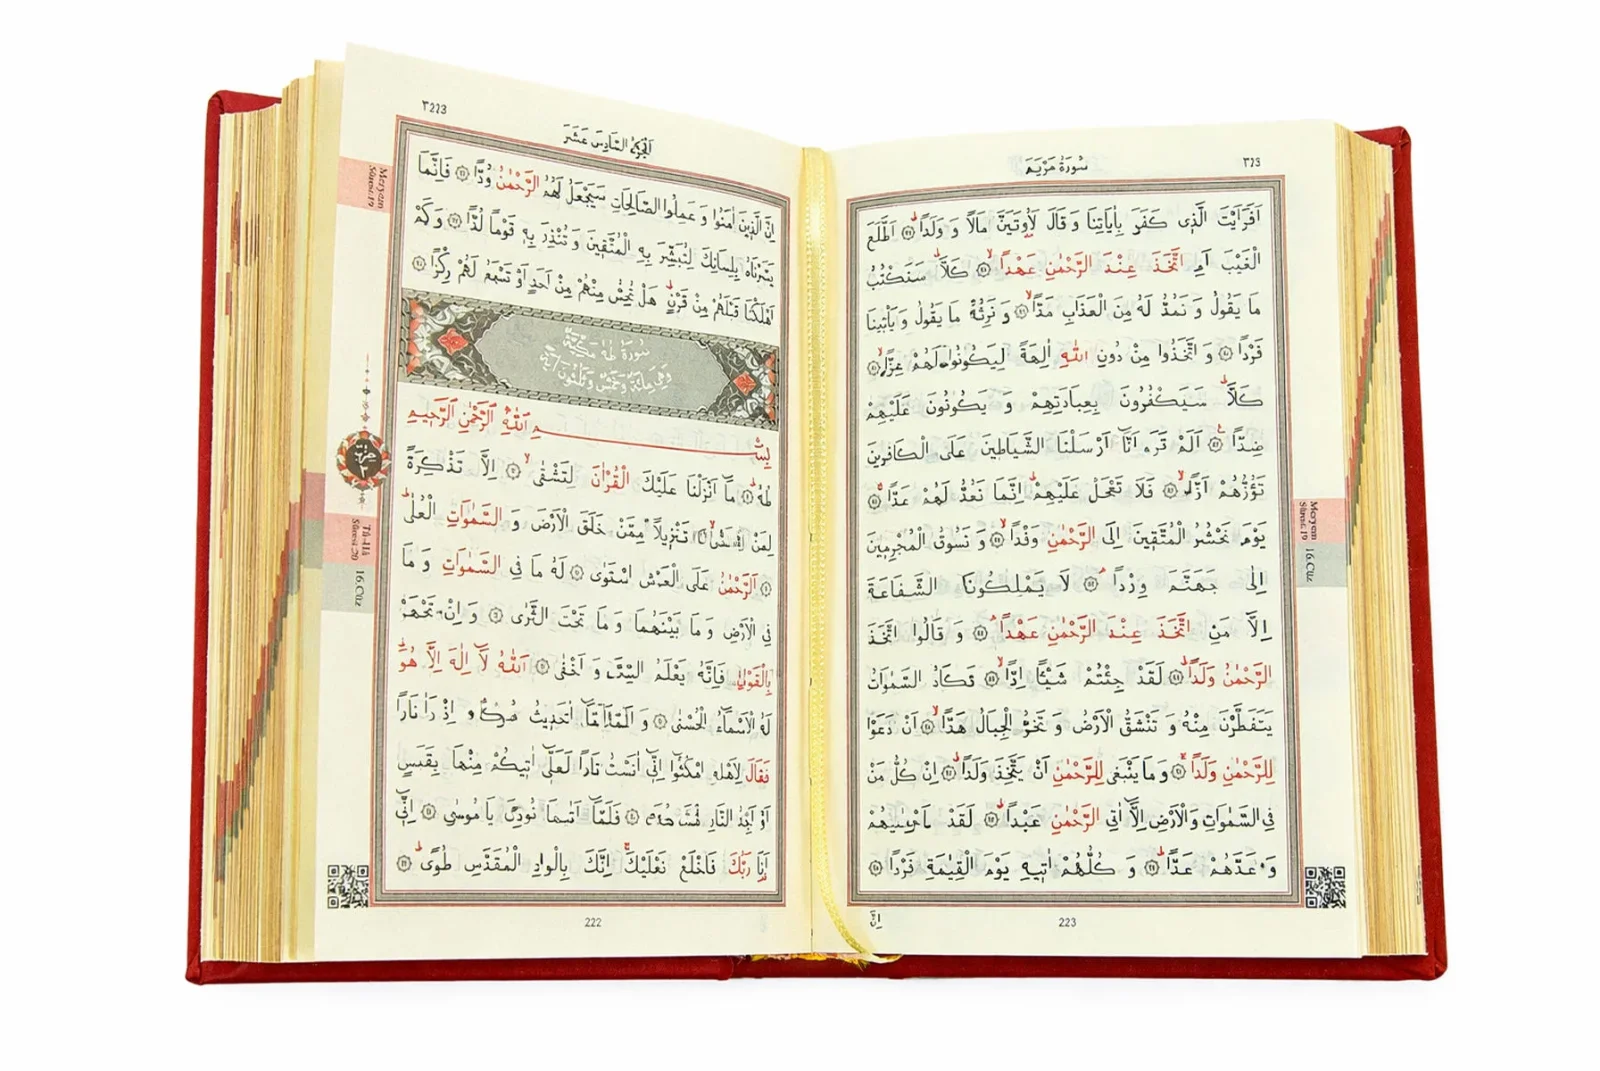 سُورَةُ مَرْيَمَ
اَفَرَاَيْتَ الَّذٖى كَفَرَ بِاٰيَاتِنَا وَ قَالَ لَاُوتَيَنَّ مَالًا وَ وَلَدًا اَطَّلَعَ
الْغَيْبَ اَمِ اتَّخَذَ عِنْدَ الرَّحْمٰنِ عَهْدًا كَلَّا سَنَكْتُبُ
مَا يَقُولُ وَ نَمُدُّ لَهُ مِنَ الْعَذَابِ مَدًّا وَ نَرِثُهُ مَا يَقُولُ وَ يَاْتٖينَا
فَرْدًا وَ اتَّخَذُوا مِنْ دُونِ اللّٰهِ اٰلِهَةً لِيَكُونُوا لَهُمْ عِزًّا
كَلَّا سَيَكْفُرُونَ بِعِبَادَتِهِمْ وَ يَكُونُونَ عَلَيْهِمْ
ضِدًّا اَلَمْ تَرَ اَنَّا اَرْسَلْنَا الشَّيَاطٖينَ عَلَى الْكَافِرٖينَ
تَؤُزُّهُمْ اَزًّا فَلَا تَعْجَلْ عَلَيْهِمْ اِنَّمَا نَعُدُّ لَهُمْ عَدًّا
يَوْمَ نَحْشُرُ الْمُتَّقٖينَ اِلَى الرَّحْمٰنِ وَفْدًا وَ نَسُوقُ الْمُجْرِمٖينَ
اِلٰى جَهَنَّمَ وِرْدًا لَا يَمْلِكُونَ الشَّفَاعَةَ
اِلَّا مَنِ اتَّخَذَ عِنْدَ الرَّحْمٰنِ عَهْدًا وَ قَالُوا اتَّخَذَ
الرَّحْمٰنُ وَلَدًا لَقَدْ جِئْتُمْ شَيْئًا اِدًّا تَكَادُ السَّمٰوَاتُ
يَتَفَطَّرْنَ مِنْهُ وَ تَنْشَقُّ الْاَرْضُ وَ تَخِرُّ الْجِبَالُ هَدًّا اَنْ دَعَوْا
لِلرَّحْمٰنِ وَلَدًا وَ مَا يَنْبَغٖى لِلرَّحْمٰنِ اَنْ يَتَّخِذَ وَلَدًا اِنْ كُلُّ مَنْ
فِى السَّمٰوَاتِ وَالْاَرْضِ اِلَّا اٰتِى الرَّحْمٰنِ عَبْدًا لَقَدْ
وَ عَدَّهُمْ عَدًّا وَ كُلُّهُمْ اٰتٖيهِ يَوْمَ الْقِيٰمَةِ فَرْدًا
223
اِنَّ
Meryem
Sûresi:19
16.Cüz
اَلْجُزْءُ السَّادِسَ عَشَرَ
اِنَّ الَّذٖينَ اٰمَنُوا وَ عَمِلُوا الصَّالِحَاتِ سَيَجْعَلُ لَهُمُ الرَّحْمٰنُ وُدًّا فَاِنَّمَا
يَسَّرْنَاهُ بِلِسَانِكَ لِتُبَشِّرَ بِهِ الْمُتَّقٖينَ وَ تُنْذِرَ بِهٖ قَوْمًا لُدًّا وَ كَمْ
اَهْلَكْنَا قَبْلَهُمْ مِنْ قَرْنٍ هَلْ تُحِسُّ مِنْهُمْ مِنْ اَحَدٍ اَوْ تَسْمَعُ لَهُمْ رِكْزًا
سُورَةُ طٰهٰ مَكِّيَّةٌ
وَهِىَ مِائَةٌ وَخَمْسٌ وَثَلٰثُونَ اٰيَةً
بِسْمِ اللّٰهِ الرَّحْمٰنِ الرَّحٖيمِ
طٰهٰ مَا اَنْزَلْنَا عَلَيْكَ الْقُرْاٰنَ لِتَشْقٰى اِلَّا تَذْكِرَةً
لِمَنْ تَنْزٖيلًا مِمَّنْ خَلَقَ الْاَرْضَ وَ السَّمٰوَاتِ الْعُلٰى
اَلرَّحْمٰنُ عَلَى الْعَرْشِ اسْتَوٰى لَهُ مَا فِى السَّمٰوَاتِ وَ مَا
فِى الْاَرْضِ وَ مَا بَيْنَهُمَا وَ مَا تَحْتَ الثَّرٰى وَ اِنْ تَجْهَرْ
بِالْقَوْلِ فَاِنَّهُ يَعْلَمُ السِّرَّ وَ اَخْفٰى اَللّٰهُ لَا اِلٰهَ اِلَّا هُوَ
لَهُ الْاَسْمَاءُ الْحُسْنٰى وَ حَدٖيثُ اِذْ رَاٰ نَارًا
فَقَالَ لِاَهْلِهِ امْكُثُوا اِنّٖى اٰنَسْتُ نَارًا لَعَلّٖى اٰتٖيكُمْ مِنْهَا بِقَبَسٍ
اَوْ اَجِدُ النَّارِ فَلَمَّا اَتٰيهَا نُودِىَ يَا مُوسٰى اِنّٖى
اَنَا رَبُّكَ فَاخْلَعْ نَعْلَيْكَ اِنَّكَ بِالْوَادِ الْمُقَدَّسِ طُوًى
222
Meryem
Sûresi:19
حِزْبٌ
٣
Tâ-Hâ
Sûresi:20
16.Cüz